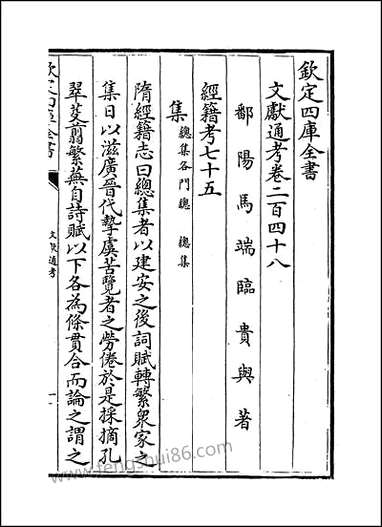 欽定四庫全書
文獻通考卷二百四十八
鄱陽馬端臨貴與著
經籍考七十五
集 總集各門總 總集
隋經籍志曰總集者以建安之後詞賦轉繁衆家之
集日以滋廣晉代摯虞苦覽者之勞倦於是採摘孔
翠芟翦繁蕪自詩賦以下各為條貫合而論之謂之
文獻通考
一
www.fengshui86.com